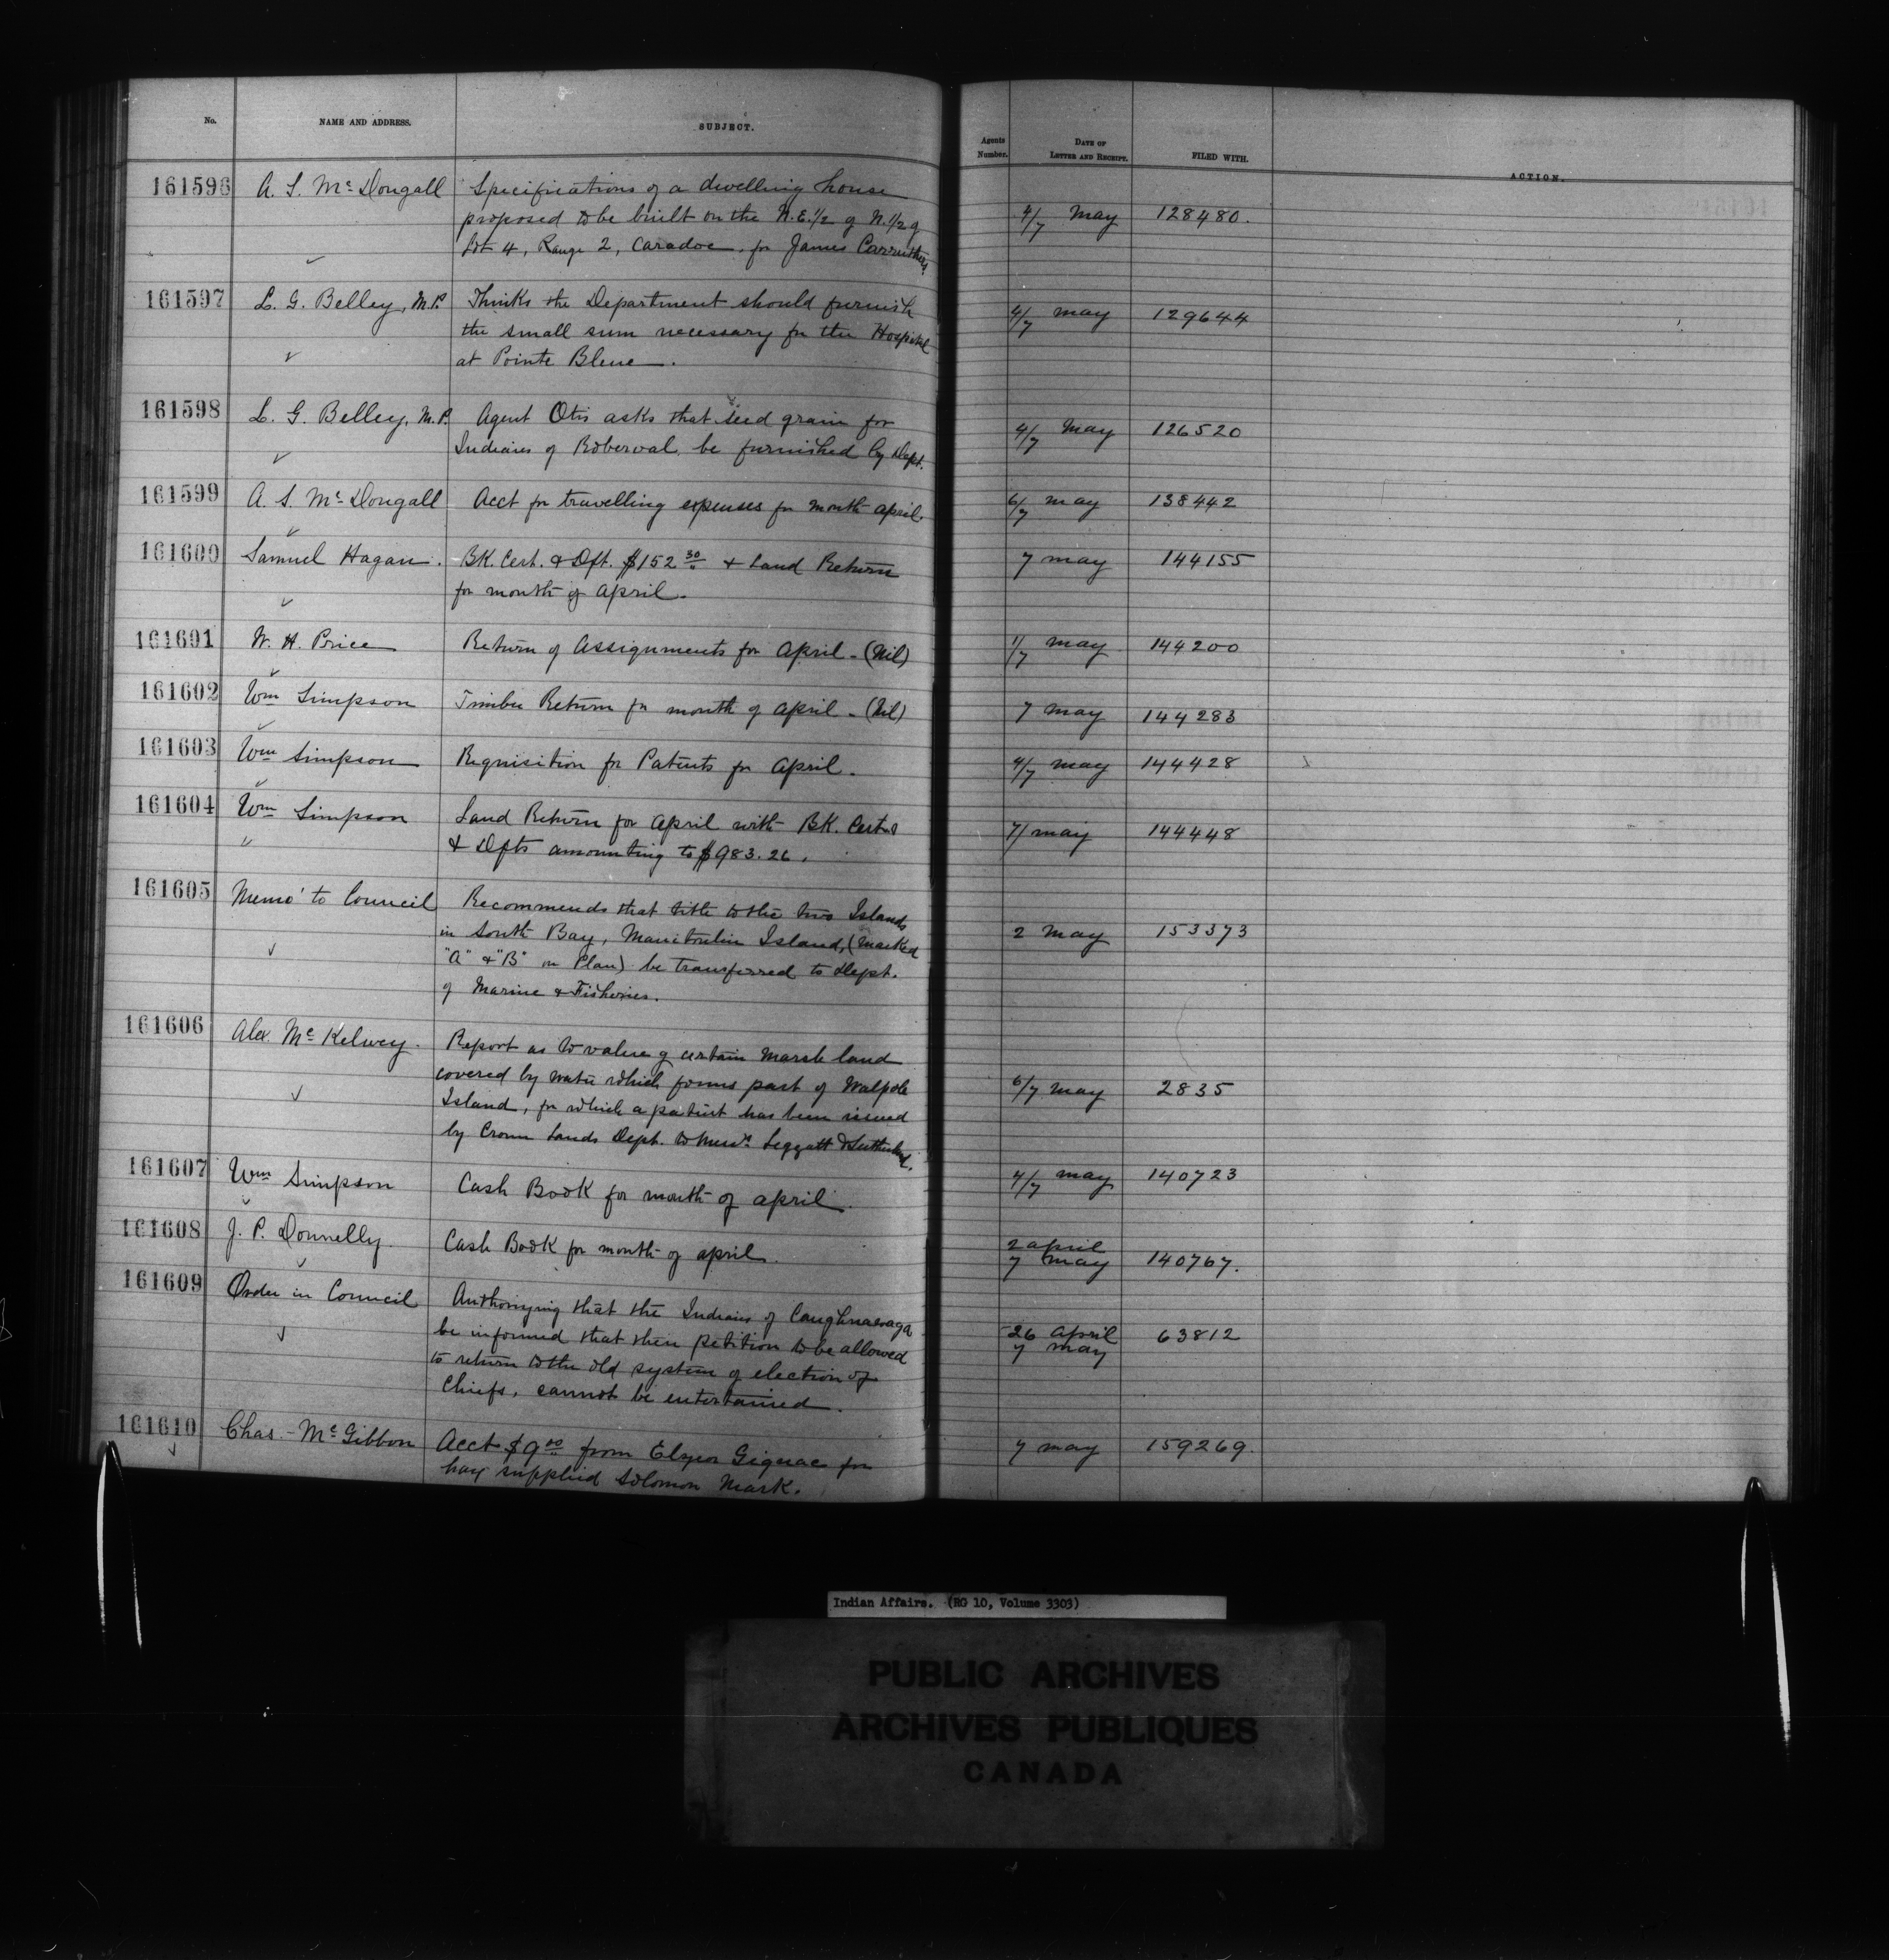 No. NAME AND ADDRESS. SUBJECT. Agents Number. DATE OF LETTER AND RECEIPT. FILED WITH. ACTION.
161596 A. S. McDougall Specifications of a dwelling house
proposed to be built on the N.E. 1/2 of N. 1/2 of 4/7 May 128480.
Lot 4, Range 2, Caradoc, for James Carruthers
161597 L. G. Belley, M.P. Thinks the Department should furnish
the small sum necessary for the Hospital 4/7 May 129644
at Pointe Bleue.
161598 L. G. Belley, M.P. Agent Otis asks that seed grain for
Indians of Roberval be furnished by Dept. 4/7 May 126520
161599 A. S. McDougall Acct for travelling expenses for month April. 6/7 May 138442
161600 Samuel Hagan. BK. Cert. & Dft. $152 30 & Land Return 7 May 144155
for month of April.
161601 W. H. Price Return of Assignments for April - (Nil) 1/7 May 144200
161602 Wm Simpson Timber Return for month of April - (Nil) 7 May 144283
161603 Wm Simpson Requisition for Patents for April. 4/7 May 144428
161604 Wm Simpson Land Return for April with BK. Certs
" & Dfts amounting to $983.26. 7/ May 144448
161605 Memo' to Council Recommends that title to the two Islands
in South Bay, Manitoulin Island, (marked 2 May 153373
"A" & "B" on Plan) be transferred to Dept.
of Marine & Fisheries.
161606 Alex. McKelvey. Report as to value of certain Marsh land
covered by water which forms part of Walpole 6/7 May 2835
Island, for which a patent has been issued
by Crown Lands Dept. to Messrs Leggatt & Sutherland.
161607 Wm Simpson Cash Book for month of April. 4/7 May 140723
161608 J. P. Donnelly. Cash Book for month of April. 2 April
7 May 140767.
161609 Order in Council Authorizing that the Indians of Caughnawaga
be informed that their petition to be allowed 26 April 63812
to return to the old system of election of 7 May
Chiefs, cannot be entertained.
161610 Chas. McGibbon Acct $9 00 from Gignac for 7 May 159269.
hay supplied Solomon Mark.
Indian Affairs. (RG 10, Volume 3303)
PUBLIC ARCHIVES
ARCHIVES PUBLIQUES
CANADA